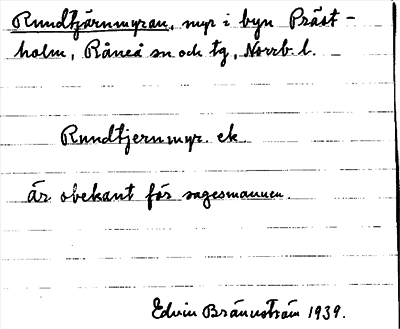 Rundtjärnmyran, myr i byn Präst-
holm, Råneå sn och tg, Norrb. l.
Rundtjernmyr. ek
är obekant för sagesmannen.
Edvin Brännström 1939.